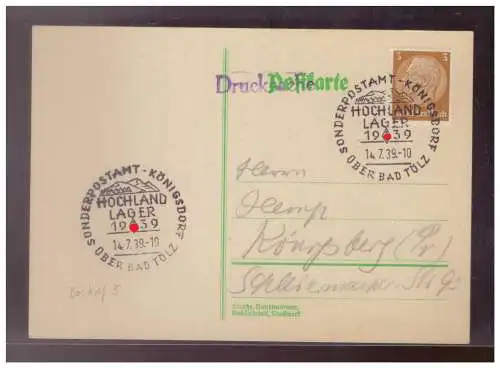 Drucksache
Postkarte
3 3
SONDERPOSTAMT-KÖNIGSDORF
HOCHLAND
LAGER
1939
14.7.39.-10
ÜBER BAD TÖLZ
SONDERPOSTAMT-KÖNIGSDORF
HOCHLAND
LAGER
1939
14.7.39.-10
ÜBER BAD TÖLZ
Herrn
Königsberg (Pr)
Straße, Hausnummer,